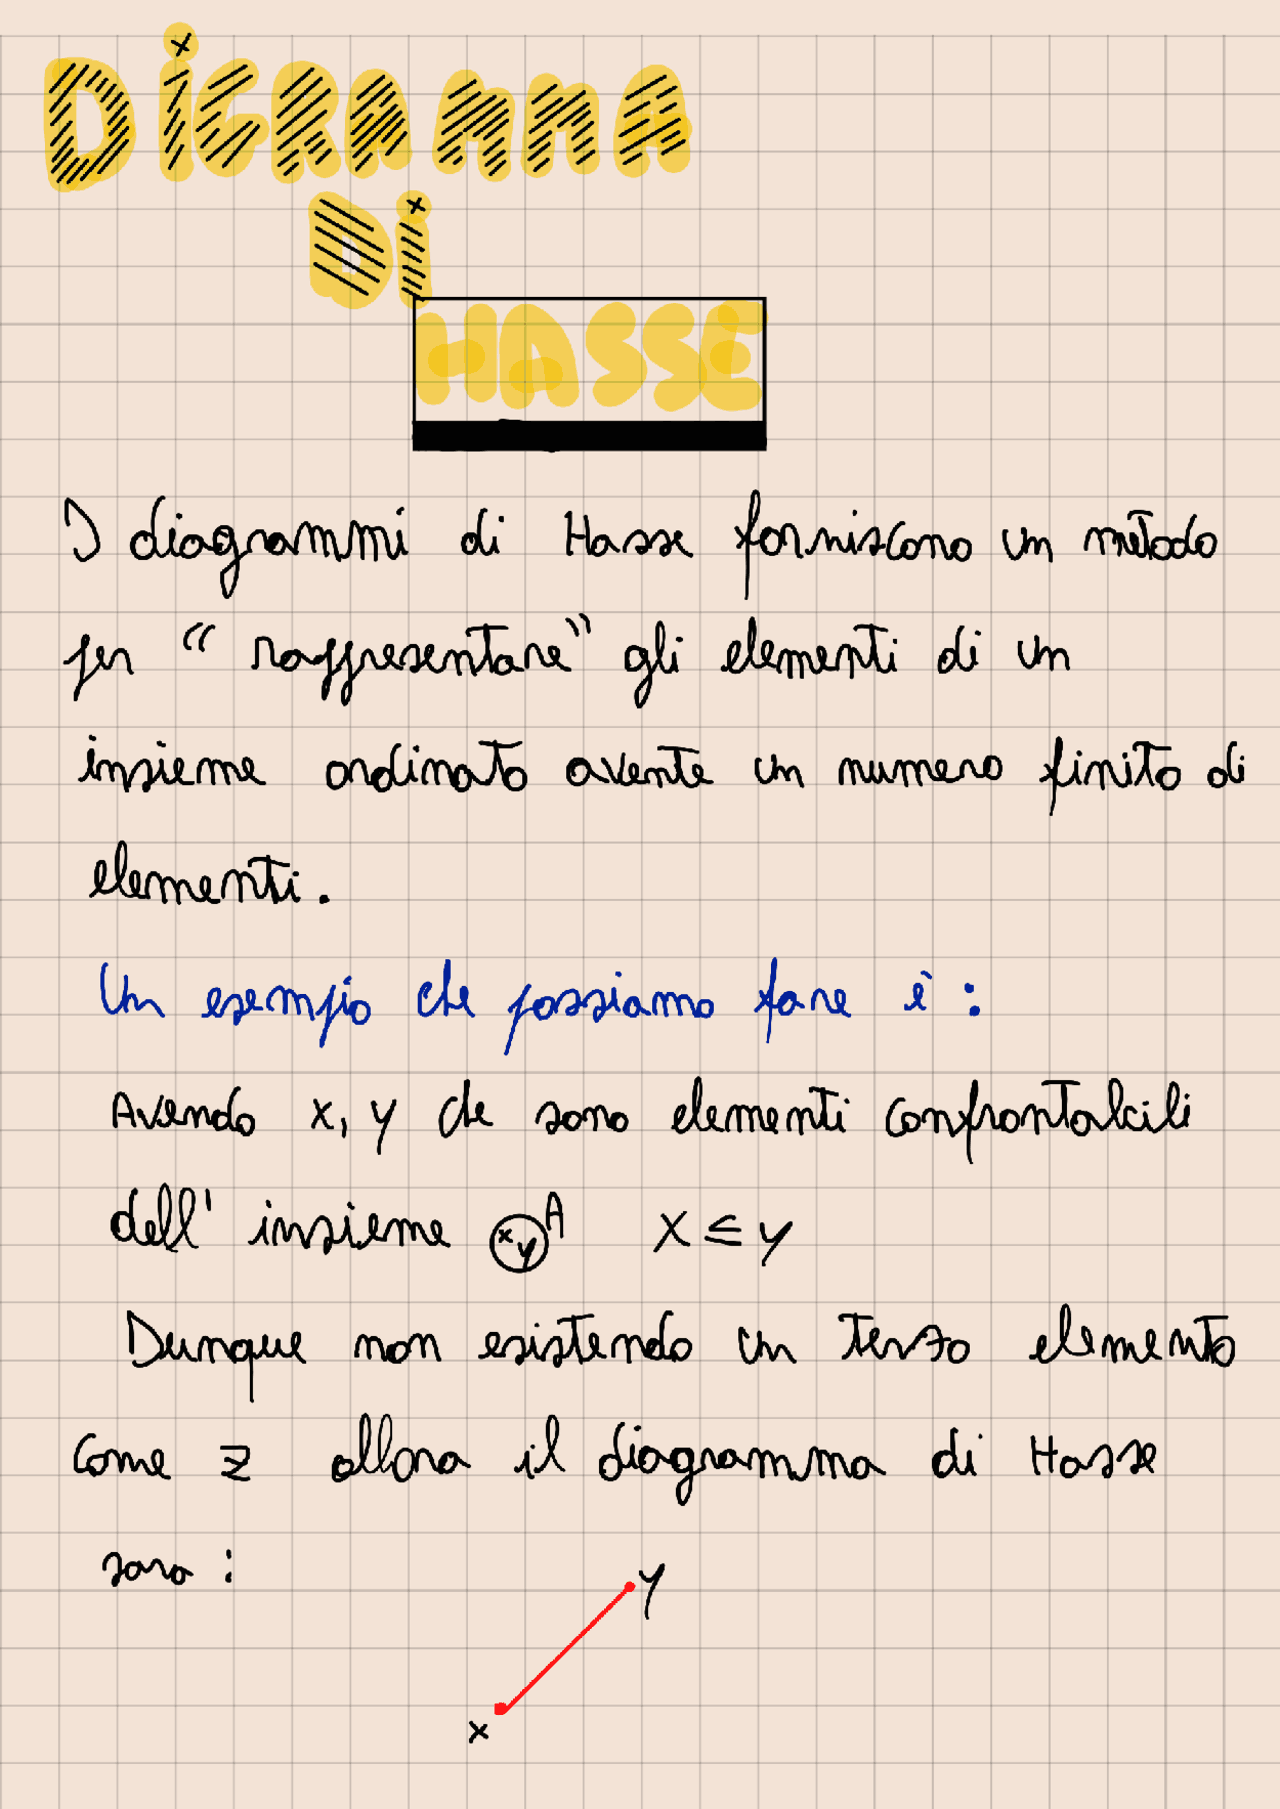 DiGRAMMA
Di
HASSE
I diagrammi di Hasse forniscono un metodo
per “rappresentare” gli elementi di un
insieme ordinato avente un numero finito di
elementi.
Un esempio che possiamo fare è:
Avendo x, y che sono elementi confrontabili
dell' insieme x y A x ≤ y
Dunque non esistendo un terzo elemento
come z allora il diagramma di Hasse
sara:
y
x